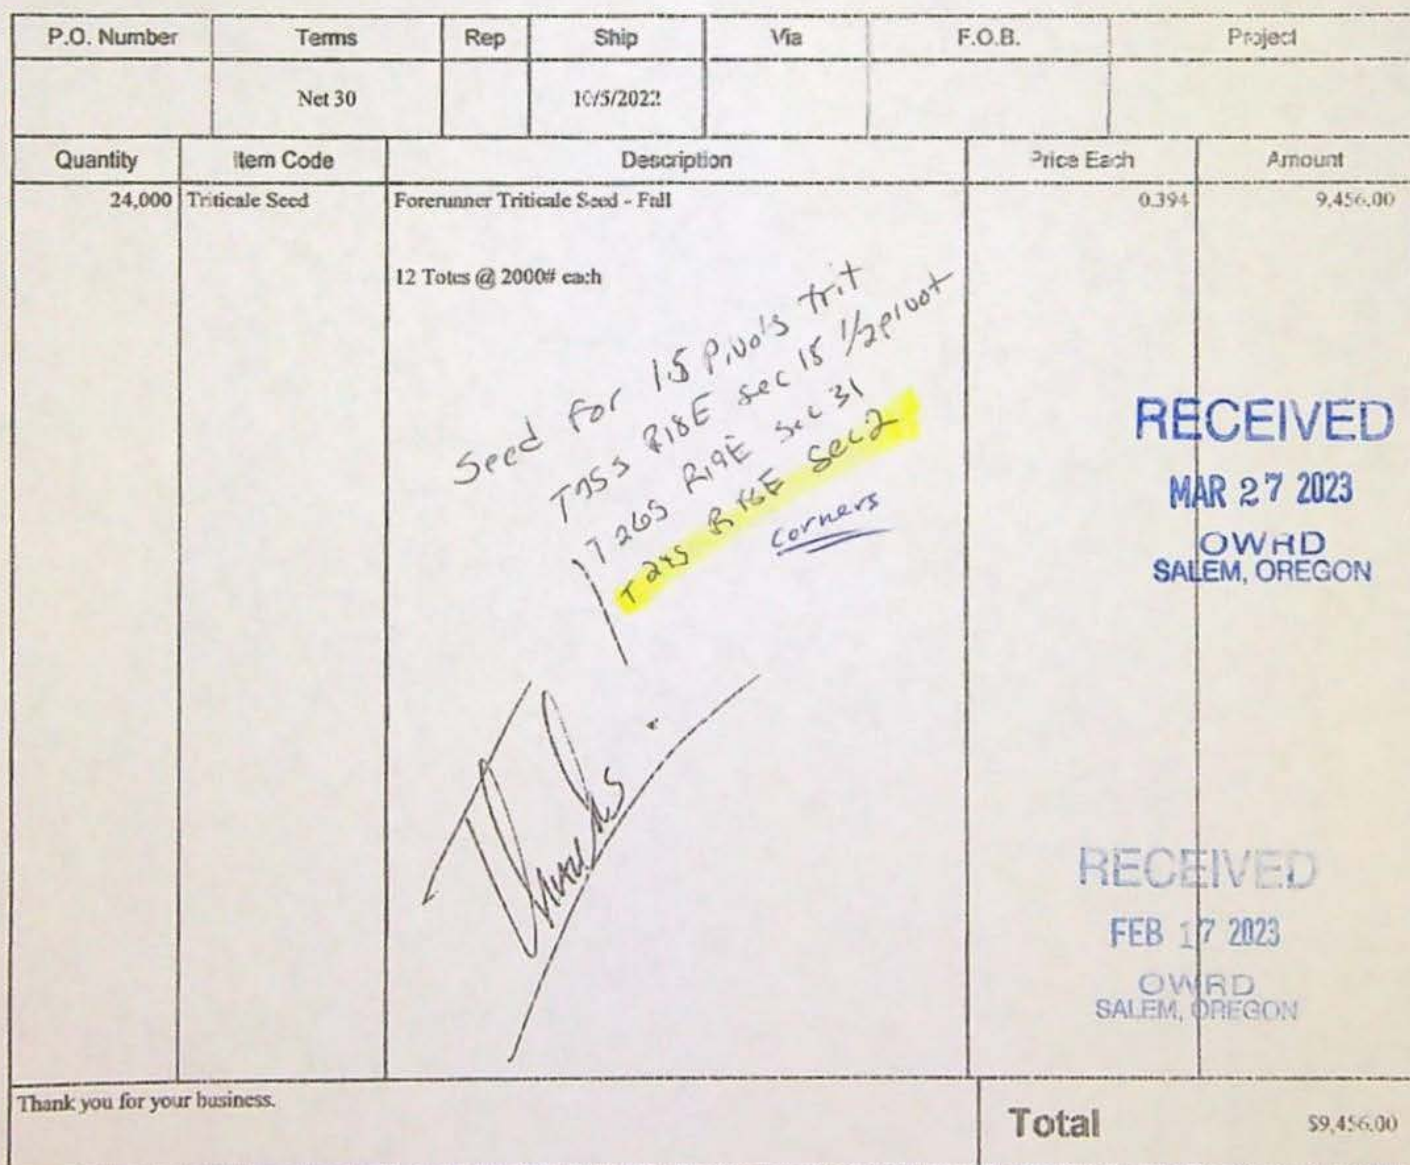 P.O. Number Terms Rep Ship Via F.O.B. Project
Net 30 10/5/2022
Quantity Item Code Description Price Each Amount
24,000 Triticale Seed Forerunner Triticale Seed - Fall 0.394 9,456.00
12 Totes @ 2000# each
Seed for 1.5 Pivots trit
R18E sec 18 1/2 pivot
T26S R19E Sec 31
R18E Sec 2
corners
Thanks
RECEIVED
MAR 27 2023
OWRD
SALEM, OREGON
RECEIVED
FEB 17 2023
OWRD
SALEM, OREGON
Thank you for your business.
Total $9,456.00